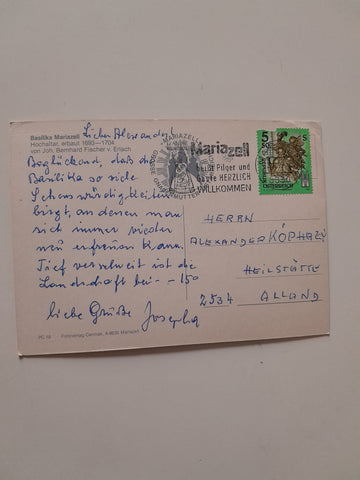 Basilika Mariazell
Hochaltar, erbaut 1693—1704
von Joh. Bernhard Fischer v. Erlach
Lieber Alexander!
Beglückend, daß die
Basilika so viele
Sehenswürdigkeiten
birgt, an denen man
sich immer wieder
neu erfreuen kann.
Tief verschneit ist die
Landschaft bei - 15°
liebe Grüße Josepha
MARIAZELL
Mariazell
heißt Pilger und
Gäste HERZLICH
WILLKOMMEN
5 S
5
ÖSTERREICH
HERRN
ALEXANDER KÓPHAZY
HEILSTÄTTE
2534 ALLAND
PC 19 Fotoverlag A-8630 Mariazell